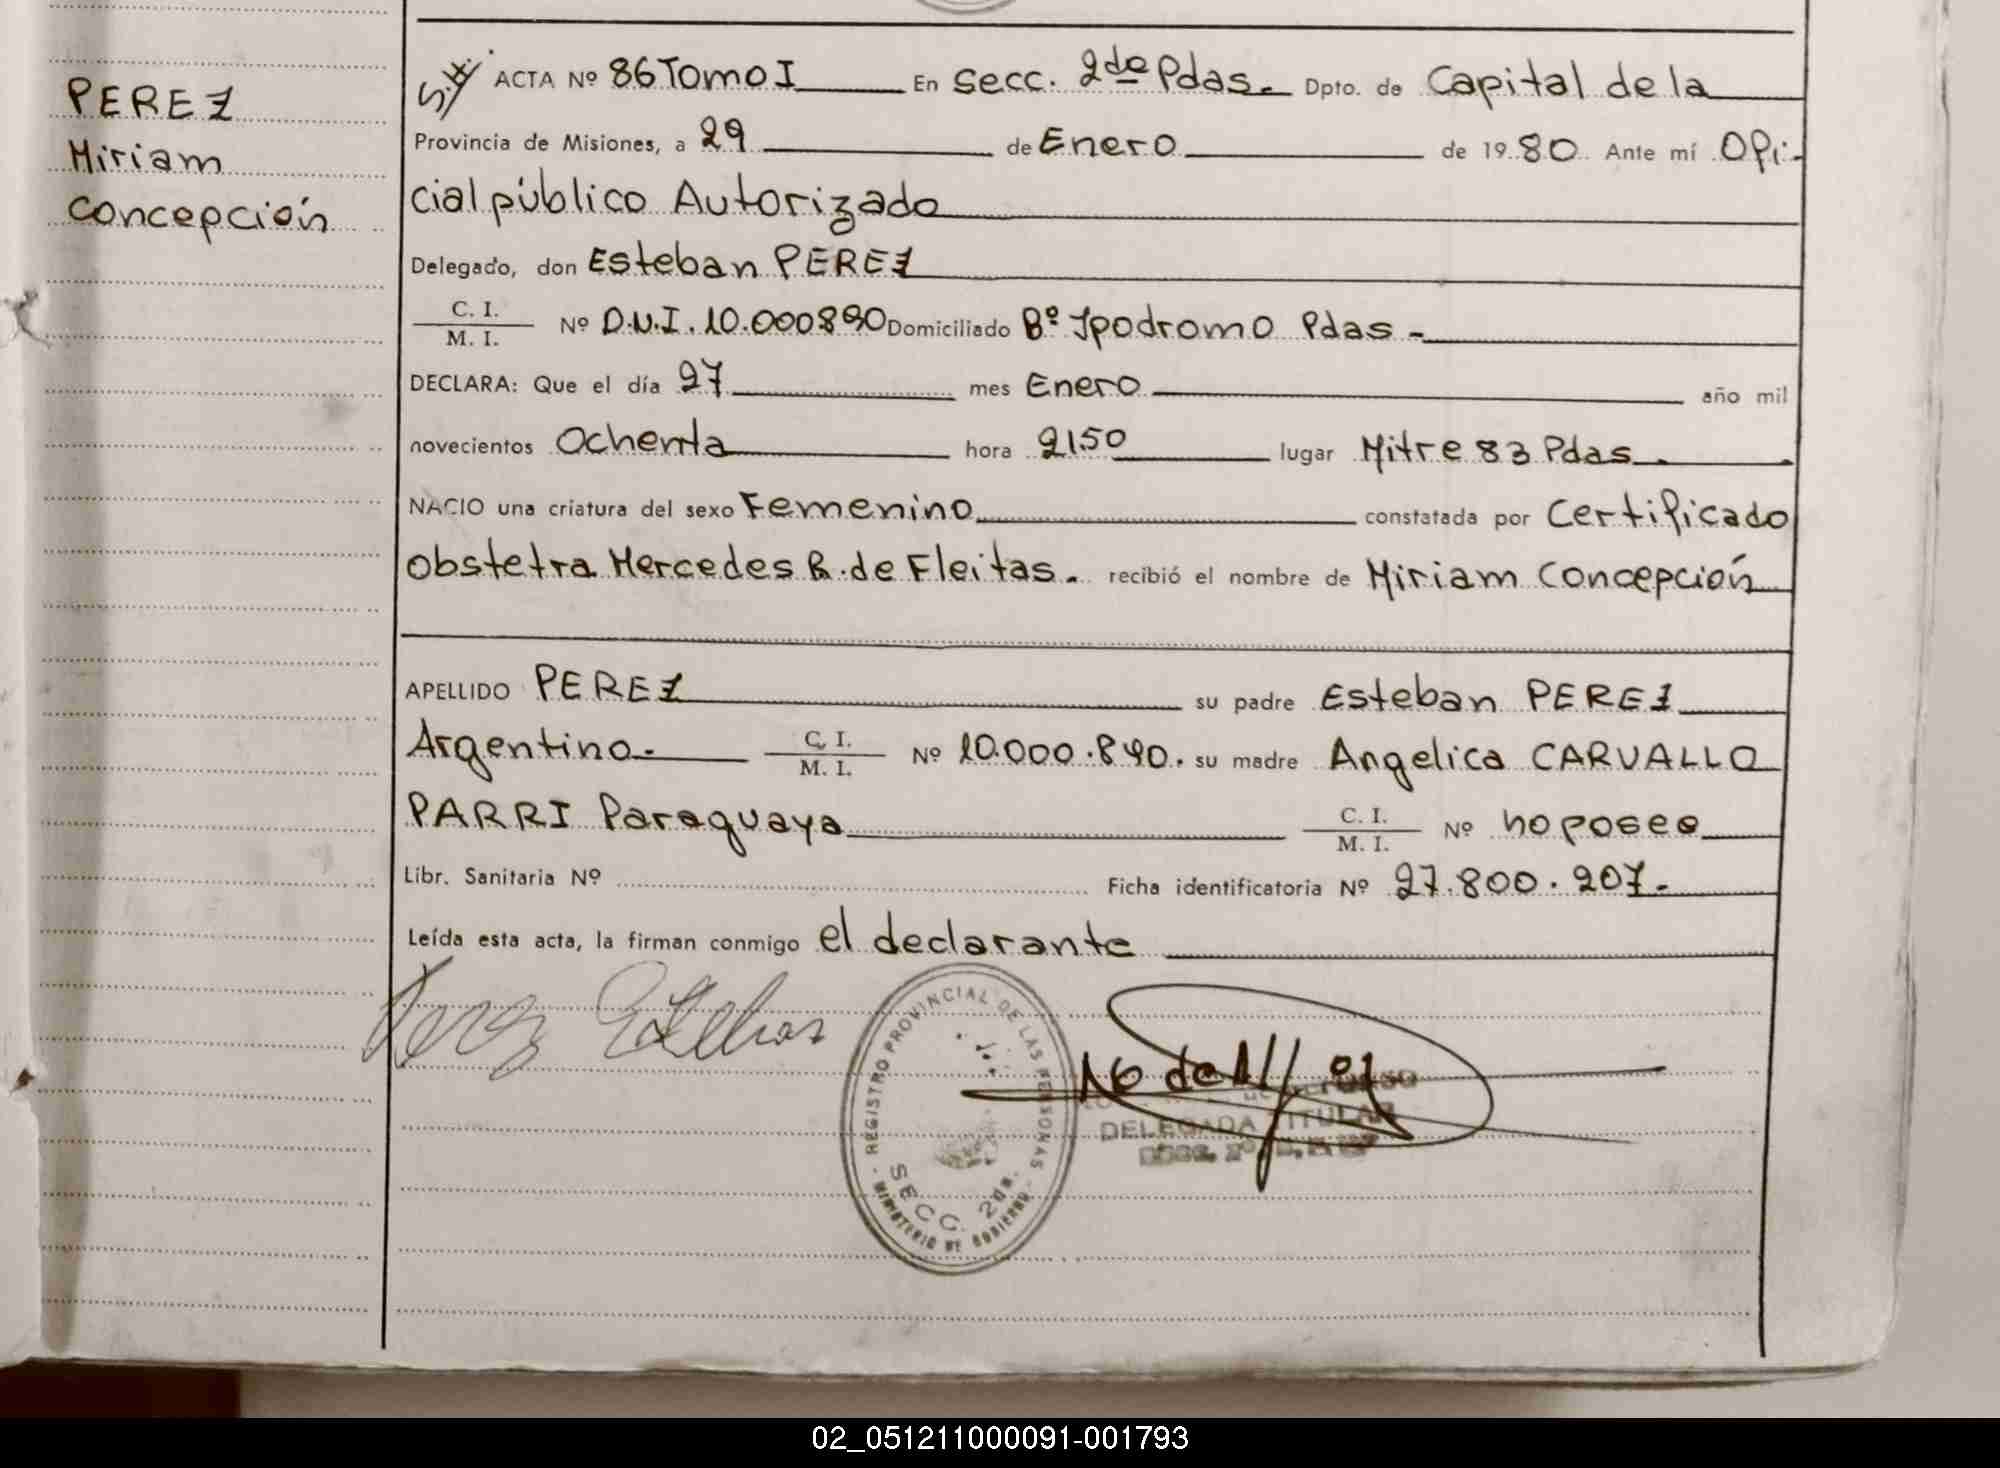 PEREZ
Miriam
Concepción
S.H. ACTA Nº 86 Tomo I En Secc. 2da Pdas. Dpto. de Capital de la
Provincia de Misiones, a 29 de Enero de 1980 Ante mí Ofi-
cial público Autorizado
Delegado, don Esteban PEREZ
C. I.
M. I. Nº D.N.I. 10.000890 Domiciliado Bº Ipodromo Pdas -
DECLARA: Que el día 27 mes Enero año mil
novecientos Ochenta hora 2150 lugar Mitre 83 Pdas.
NACIO una criatura del sexo Femenino constatada por Certificado
Obstetra Mercedes B. de Fleitas. recibió el nombre de Miriam Concepción
APELLIDO PEREZ su padre Esteban PEREZ
Argentino.- C. I.
M. I. Nº 10.000.890. su madre Angelica CARVALLO
PARRI Paraguaya C. I.
M. I. Nº no posee
Libr. Sanitaria Nº Ficha identificatoria Nº 27.800.207.-
Leída esta acta, la firman conmigo el declarante
Perez Esteban
REGISTRO PROVINCIAL DE LAS PERSONAS
SECC. 2da.
MINISTERIO DE GOBIERNO
DELEGADA TITULAR
02_051211000091-001793